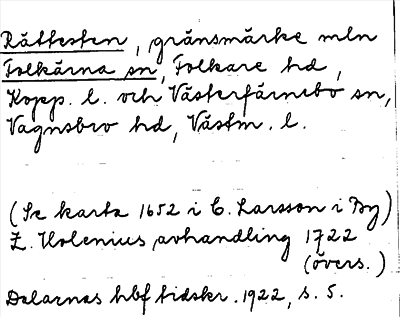 Rättesten, gränsmärke mln
Folkärna sn, Folkare hd,
Kopp. l. och Västerfärnebo sn,
Vagnsbro hd, Västm. l.
(Se karta 1652 i C. Larsson i By)
Z. Holenius avhandling 1722
(övers.)
Dalarnas hbf tidskr. 1922, s. 5.